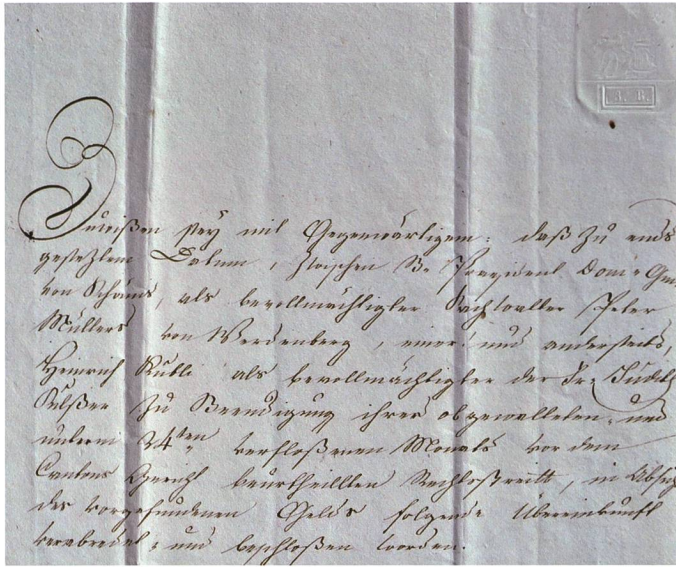 3. B.
Zuwißen sey mit Gegenwärtigem: daß zu ends
gesetztem Datum, zwischen Hr. Præsident Domi=
von Schänis, als bevollmächtigter Sachwalter Peter
Müllers von Werdenberg, einer= und anderseits,
Heinrich Kubli als bevollmächtigter der Fr. Judith
zu Beendigung ihres obgewalteten, und
unterm 24ten verfloßenen Monats vor dem
Cantons Gericht beurtheilten Rechtsstreitts, in Absich
des vorgefundenen Gelds folgende Übereinkunft
verabredet, und beschloßen worden.